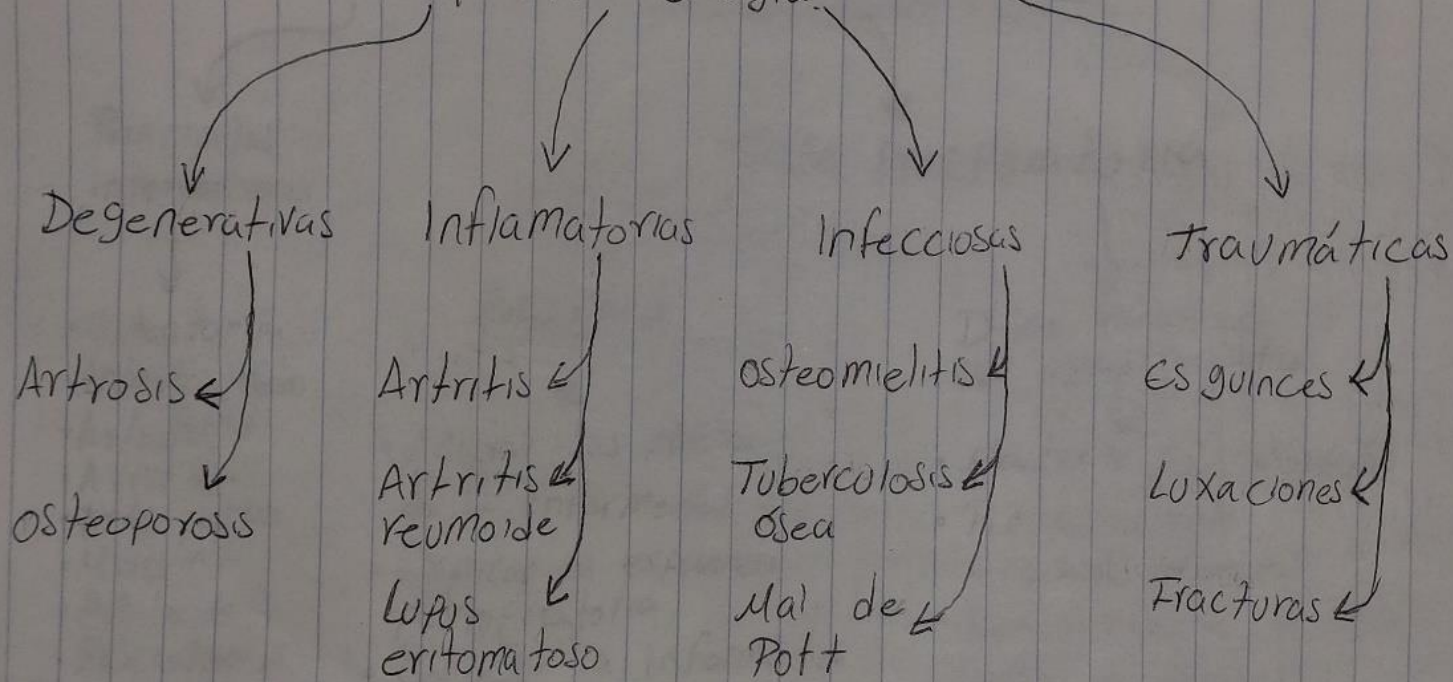 Degenerativas
Artrosis
Osteoporosis
Inflamatorias
Artritis
Artritis
reumoide
Lupus
eritomatoso
Infecciosas
Osteomielitis
Tubercolosis
Ósea
Mal de
Pott
Traumáticas
Esguinces
Luxaciones
Fracturas